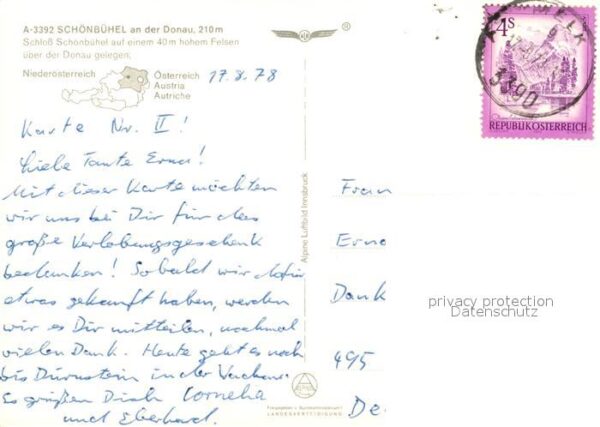 A-3392 SCHÖNBÜHEL an der Donau, 210m
Schloß Schönbühel auf einem 40m hohem Felsen
über der Donau gelegen.
Niederösterreich
Österreich
Austria
Autriche
17.8.78
Karte Nr. II!
Liebe Tante Erna!
Mit dieser Karte möchten
wir uns bei Dir für das
große Verlobungsgeschenk
bedanken! Sobald wir dafür
etwas gekauft haben, werden
wir es Dir mitteilen, nochmal
vielen Dank. Heute geht es noch
bis Dürnstein in der Wachau.
Es grüßen Dich Cornelia
und Eberhard.
Alpine Luftbild Innsbruck
LANDESVERTEIDIGUNG
4S
REPUBLIK ÖSTERREICH
MELK
3390
Frau
Erna
Dank
495
De
privacy protection
Datenschutz